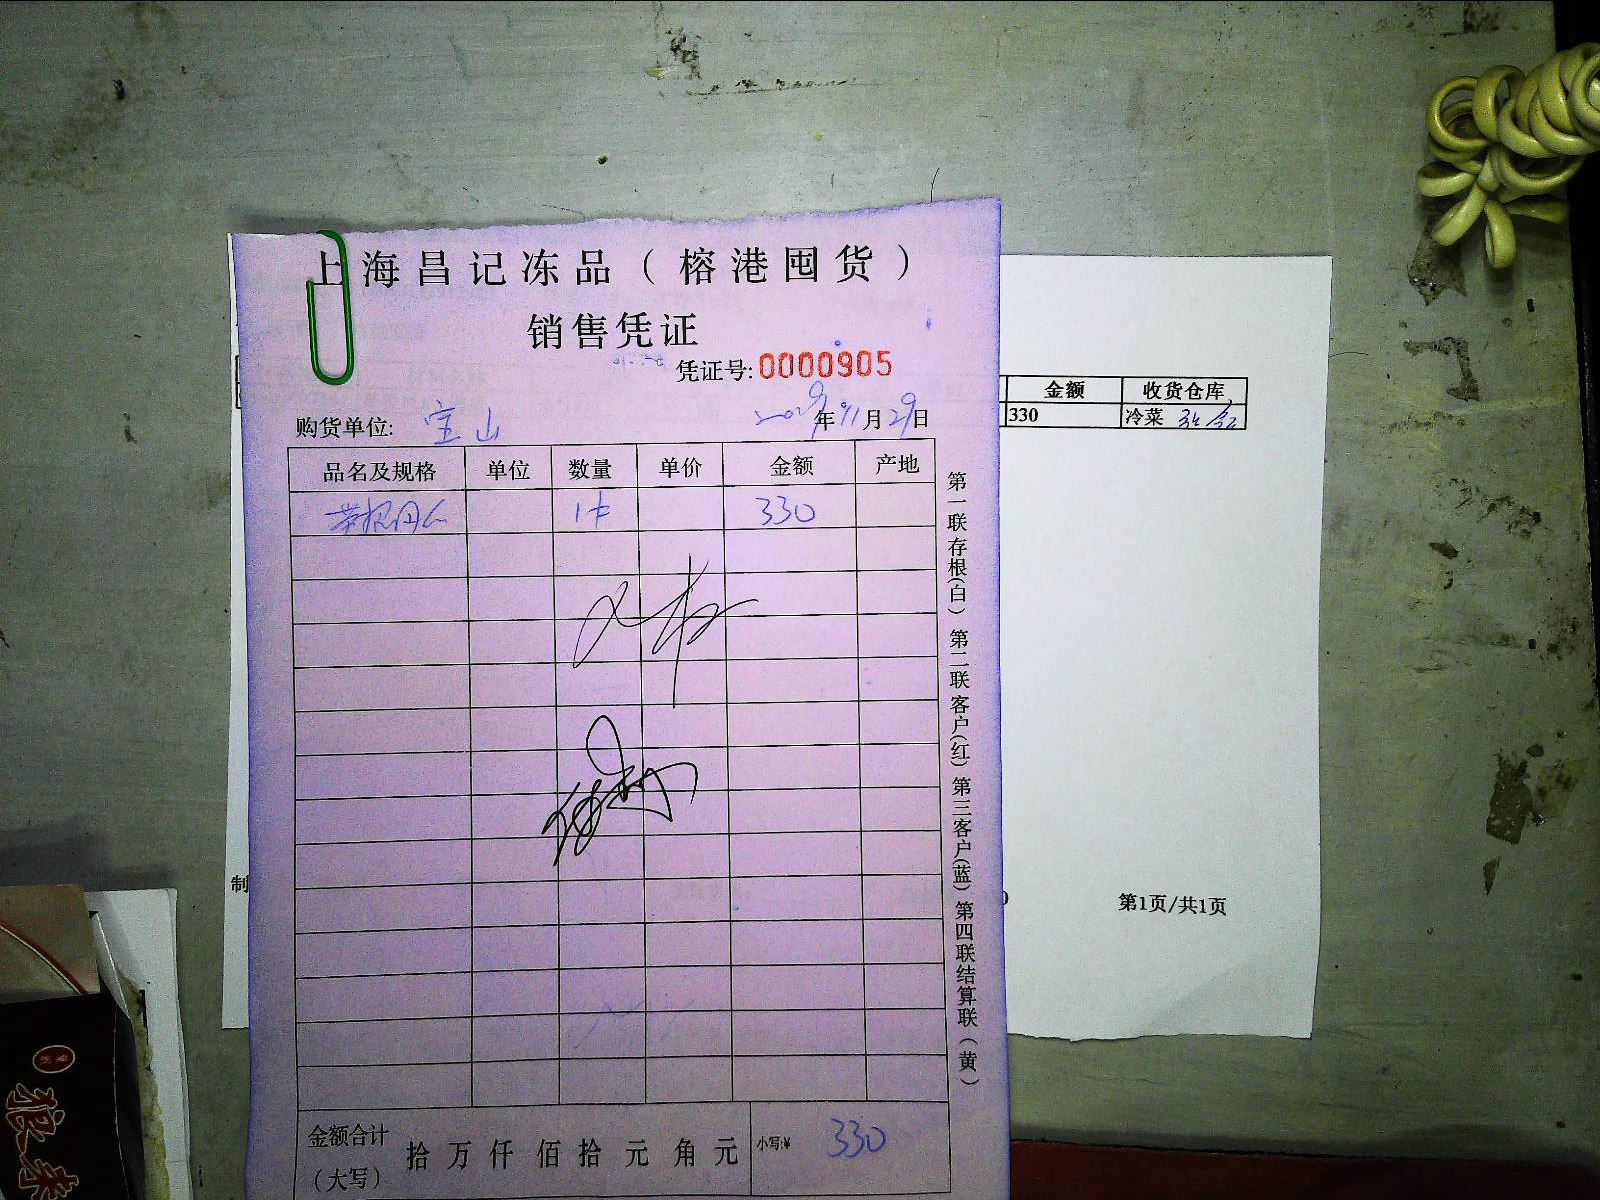 上海昌记冻品（榕港囤货）
销售凭证
凭证号:0000905
购货单位: 宝山 年11月29日
品名及规格 单位 数量 单价 金额 产地
1件 330
金额合计
（大写） 拾万仟佰拾元角元 小写:¥ 330
第一联存根(白) 第二联客户(红) 第三客户(蓝) 第四联结算联(黄)
金额 收货仓库
330 冷菜
制
第1页/共1页